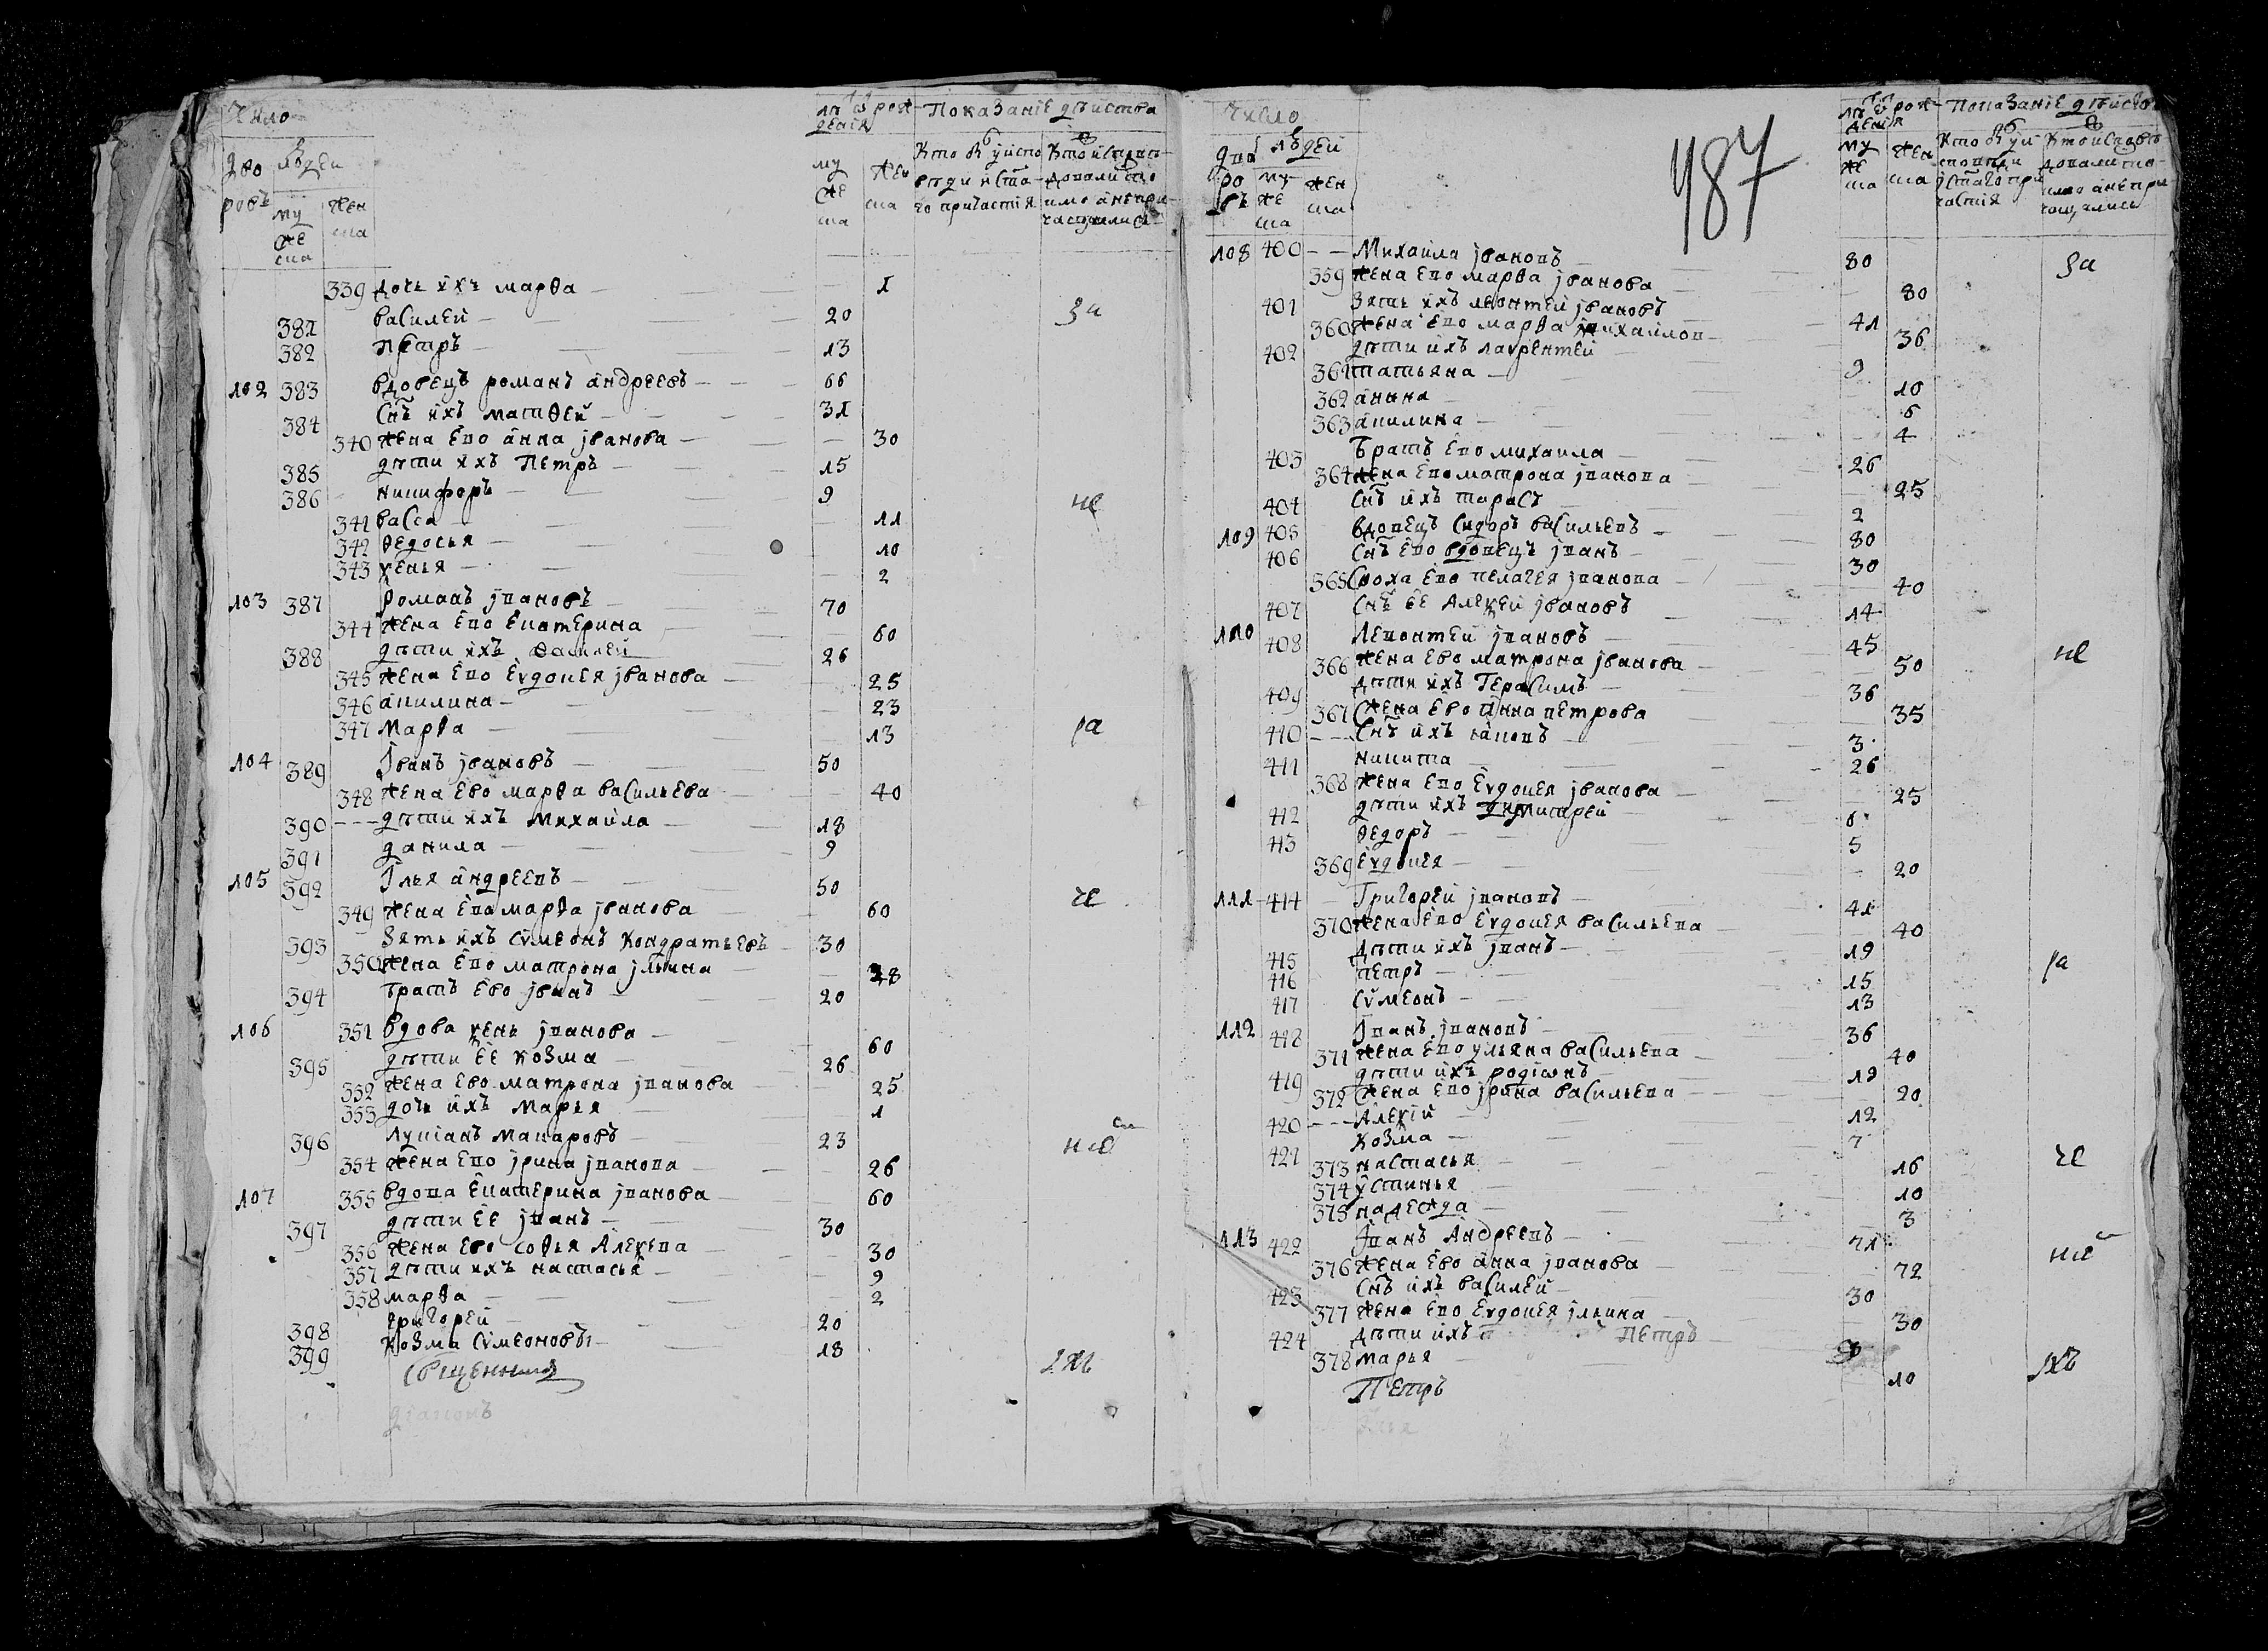 Число
лѣтъ рож- Показаніе дѣйства
денія
дво людей
ровъ
му жен
же ска
ска
му жен
же ска
ска
339 дочь ихъ марѳа — 1
381 василей — 20 за
382 петръ — 13
102 383 вдовецъ романъ андреевъ — 66
384 снъ ихъ матѳей — 31
340 жена ево анна іванова — 30
385 дѣти ихъ петръ — 15
386 никифоръ — 9 не
341 васса — 11
342 ѳедосья — 10
343 ѯенья — 2
103 387 романъ івановъ — 70
344 жена ево екатерина — 60
388 дѣти ихъ василей 26
345 жена ево еѵдокея іванова — 25
346 акилина — 23
347 марѳа — 13 ра
104 389 Іванъ івановъ — 50
348 жена ево марѳа васильева 40
390 --- дѣти ихъ михаила — 18
391 данила — 9
105 392 Ілья андреевъ — 50
349 жена ево марѳа іванова 60 че
393 Зять ихъ сѵмеонъ кондратьевъ 30
350 жена ево матрона ільина — 28
394 братъ ево іванъ — 20
106 351 вдова ѯень іванова — 60
395 дѣти ее козма — 26
352 жена ево матрона іванова — 25
353 дочь ихъ марья 1
396 лукіанъ макаровъ — 23
354 жена ево ірина іванова — 26
107 355 вдова екатерина іванова — 60
397 дѣти ее іванъ — 30
356 жена ево софья алеѯева 30
357 дѣти ихъ настасья — 9
358 марѳа — 2
398 григорей — 20
399 козма сѵмеоновы — 18
священникъ ихъ
діаконъ
Число
487
лѣтъ рож- Показаніе дѣйства
денія
108 400 -- Михаила івановъ 80 за
359 жена ево марѳа іванова 80
401 Зять ихъ леонтей івановъ 41
360 жена ево марѳа михайлов 36
402 дѣти ихъ лаврентей 9
361 татьяна — 10
362 анна — 6
363 акилина — 4
403 братъ ево михаила — 26
364 жена ево матрона іванова — 25
404 снъ ихъ тарасъ 2
109 405 вдовецъ сидоръ васильевъ — 80
406 снъ ево вдовецъ іванъ — 30
365 сноха ево пелагея іванова 40
407 снъ ее алеѯей івановъ 14
110 408 левонтей івановъ — 45
366 жена ево матрона іванова 50 не
409 дѣти ихъ герасимъ — 36
367 жена ево анна петрова 35
410 --- снъ ихъ іаковъ — 3
411 никита — 26
368 жена ево еѵдокея іванова — 25
412 дѣти ихъ димитрей 6
413 ѳедоръ — 5
369 еѵдокея — 20
111 414 Григорей івановъ — 41
370 жена ево еѵдокея васильева 40
415 дѣти ихъ іванъ — 19 ра
416 петръ — 15
417 сѵмеонъ — 13
112 418 Іванъ івановъ — 36
371 жена ево ульяна васильева — 40
419 дѣти ихъ родіонъ 19
372 жена ево ірина васильева — 20
420 --- алеѯій 12
421 козма — 7
373 настасья — 16 че
374 устинья — 10
375 надежда — 3
113 422 Іванъ андреевъ — 71
376 жена ево анна іванова — 72
423 снъ ихъ василей — 30
377 жена ево еѵдокея ільина — 30
424 дѣти ихъ петръ
378 марья — 10 ихъ
Петръ